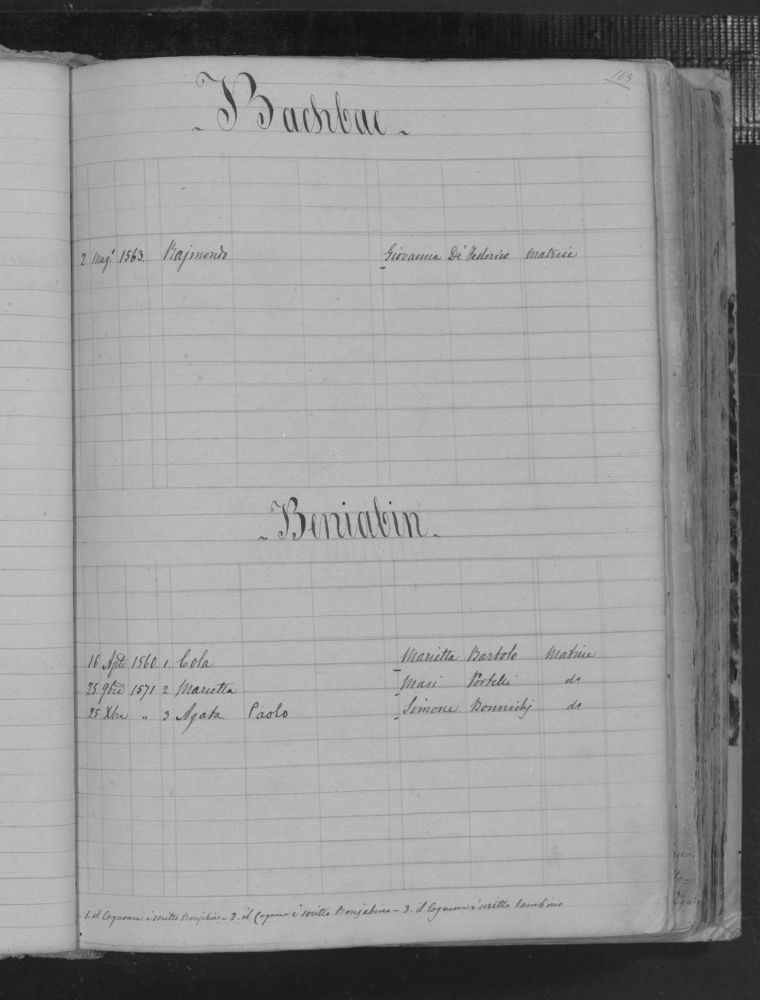 163
- Bachbac -
2 Mag.° 1563. Rajmondo Giovanna De' Federico Matrice
- Beniabin -
16 Aple 1560. 1. Cola Marietta Bartolo Matrice
25 9bre 1571 2 Marietta Masi Portelli do
25 Xbre " 3 Agata Paolo Simone Bonnichj do
1. il Cognome è scritto Bonjabino - 2. il Cognome è scritto Bonjabino - 3. il Cognome è scritto